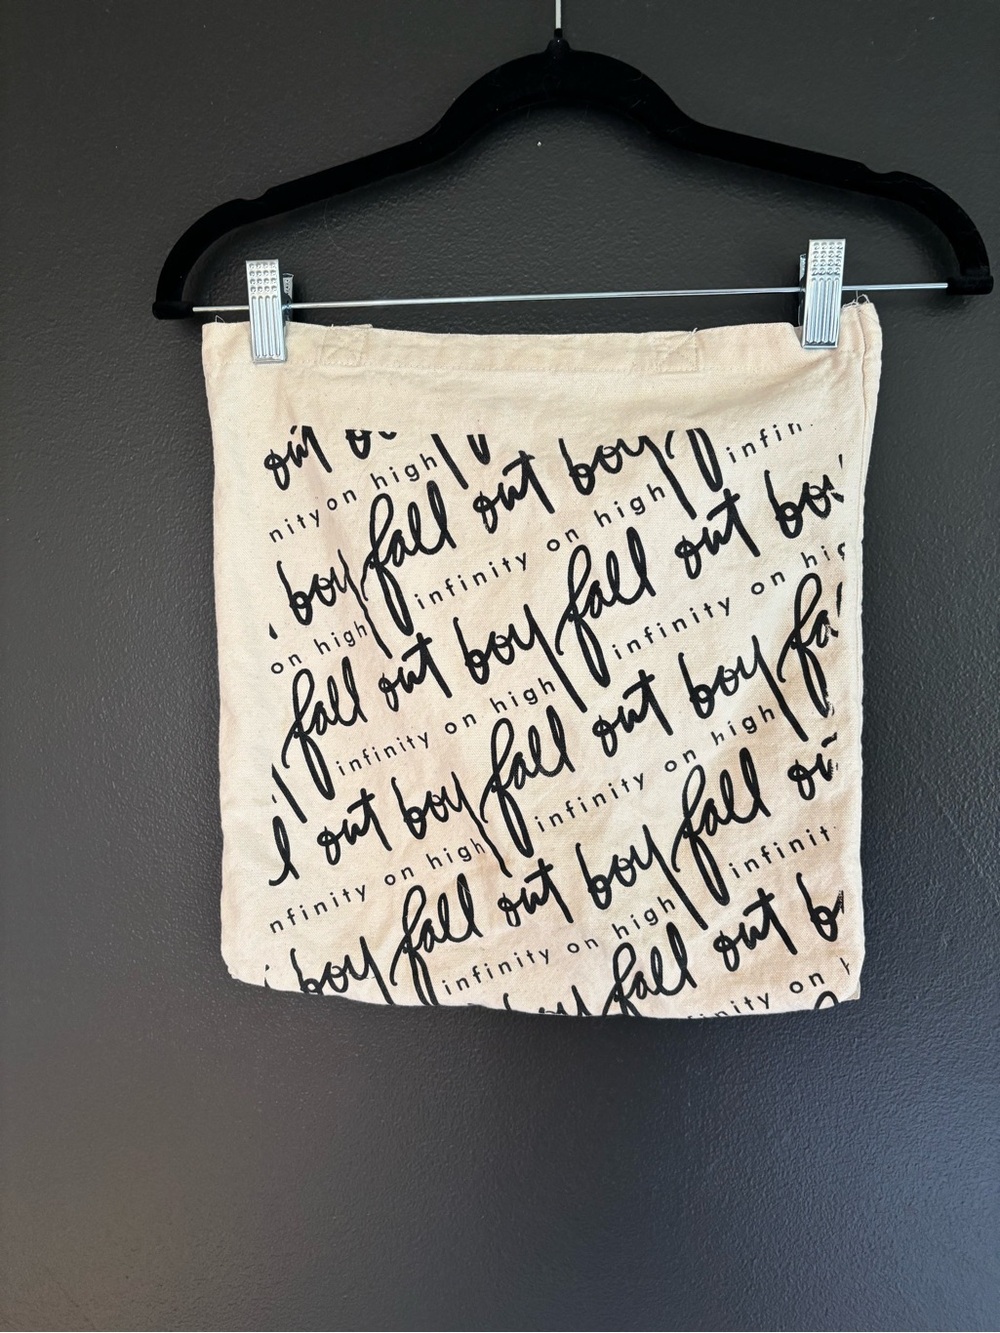 out
nity on high
fall out boy
infin
boy fall out boy
on high
infinity on high
fall out boy fall out
infinity on high
infinity on
l out boy fall out boy
infinity on high
infinity on high
boy fall out boy fall
nfinity on high
infinity on high
fall out b
infinity on high
infinit
boy
nity on